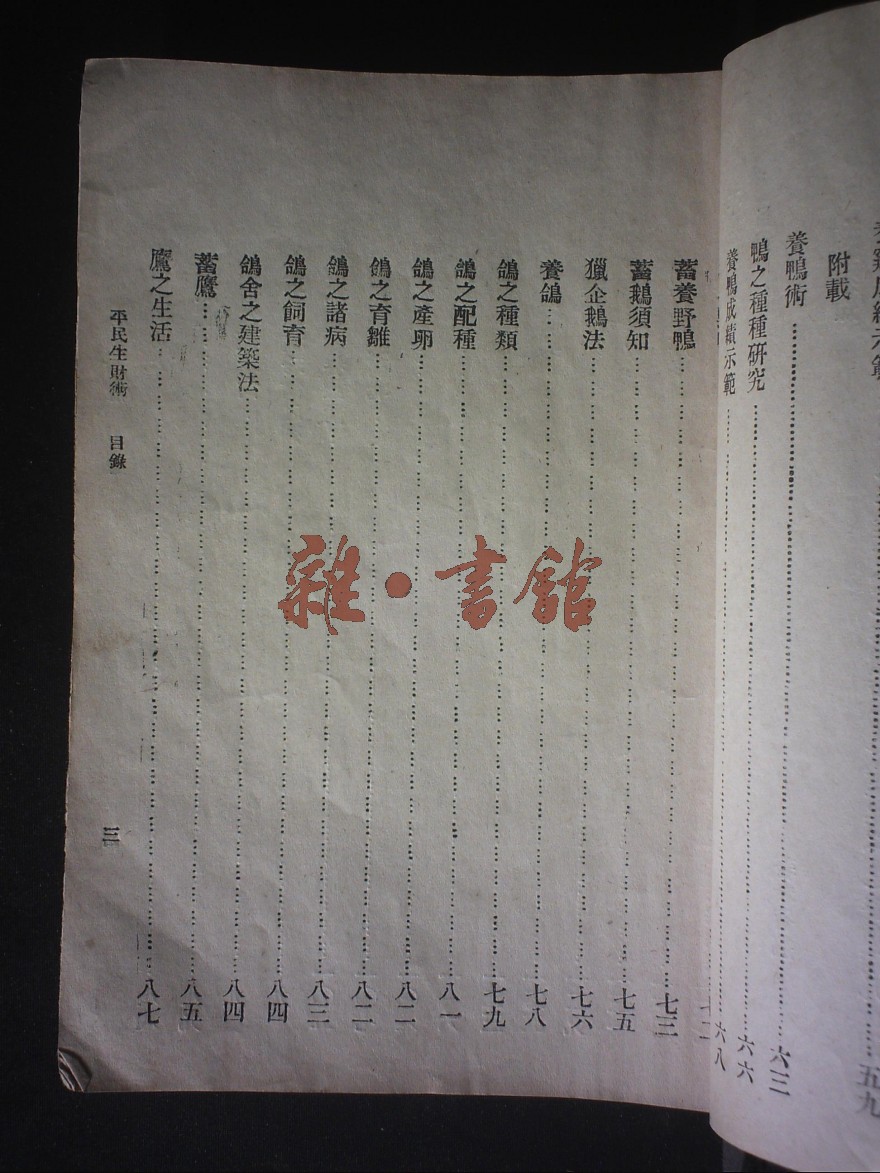 附載
養鴨術 六三
鴨之種種研究 六六
養鴨成績示範 六八
蓄養野鴨 七三
蓄鵝須知 七五
獵企鵝法 七六
養鴿 七八
鴿之種類 七九
鴿之配種 八一
鴿之產卵 八二
鴿之育雛 八二
鴿之諸病 八三
鴿之飼育 八四
鴿舍之建築法 八四
蓄鷹 八五
鷹之生活 八七
平民生財術 目錄
三
雜·書館